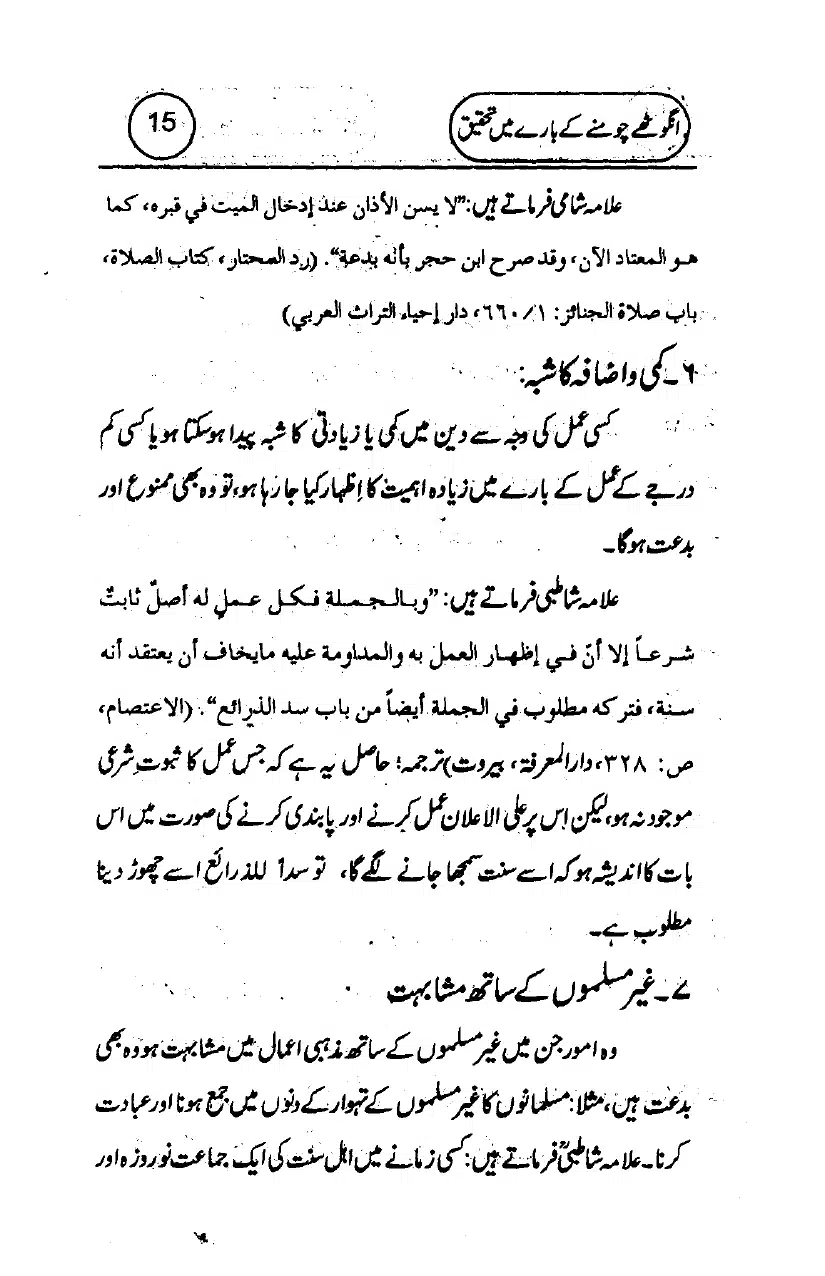 انگوٹھے چومنے کے بارے میں تحقیق
15
علامہ شامی فرماتے ہیں: ”لا یسن الأذان عند إدخال المیت في قبره، کما
هو المعتاد الآن، وقد صرح ابن حجر بأنه بدعة“. (رد المحتار، کتاب الصلاة،
باب صلاة الجنائز: ۱/۶۶۰، دار إحیاء التراث العربي)
۶۔ کمی و اضافہ کا شبہ:
کسی عمل کی وجہ سے دین میں کمی یا زیادتی کا شبہ پیدا ہوسکتا ہو یا کسی کم
درجے کے عمل کے بارے میں زیادہ اہمیت کا اِظہار کیا جا رہا ہو، تو وہ بھی ممنوع اور
بدعت ہوگا۔
علامہ شاطبی فرماتے ہیں: ”وبالجملة فکل عملٍ له أصلٌ ثابتٌ
شرعاً إلا أنّ في إظهار العمل به والمداومة علیه مایخاف أن یعتقد أنه
سنة، فترکه مطلوب في الجملة أیضاً من باب سد الذرائع“. (الاعتصام،
ص: ۳۲۸، دارالمعرفة، بیروت) ترجمہ: حاصل یہ ہے کہ جس عمل کا ثبوتِ شرعی
موجود نہ ہو، لیکن اِس پر علی الاعلان عمل کرنے اور پابندی کرنے کی صورت میں اس
بات کا اندیشہ ہو کہ اسے سنت سمجھا جانے لگے گا، تو سداً للذرائع اسے چھوڑ دینا
مطلوب ہے۔
۷۔ غیر مسلموں کے ساتھ مشابہت
وہ امور جن میں غیر مسلموں کے ساتھ مذہبی اعمال میں مشابہت ہو وہ بھی
بدعت ہیں، مثلا: مسلمانوں کا غیر مسلموں کے تہوار کے دنوں میں جمع ہونا اور عبادت
کرنا۔ علامہ شاطبیؒ فرماتے ہیں: کسی زمانے میں اہل سنت کی ایک جماعت نوروزہ اور